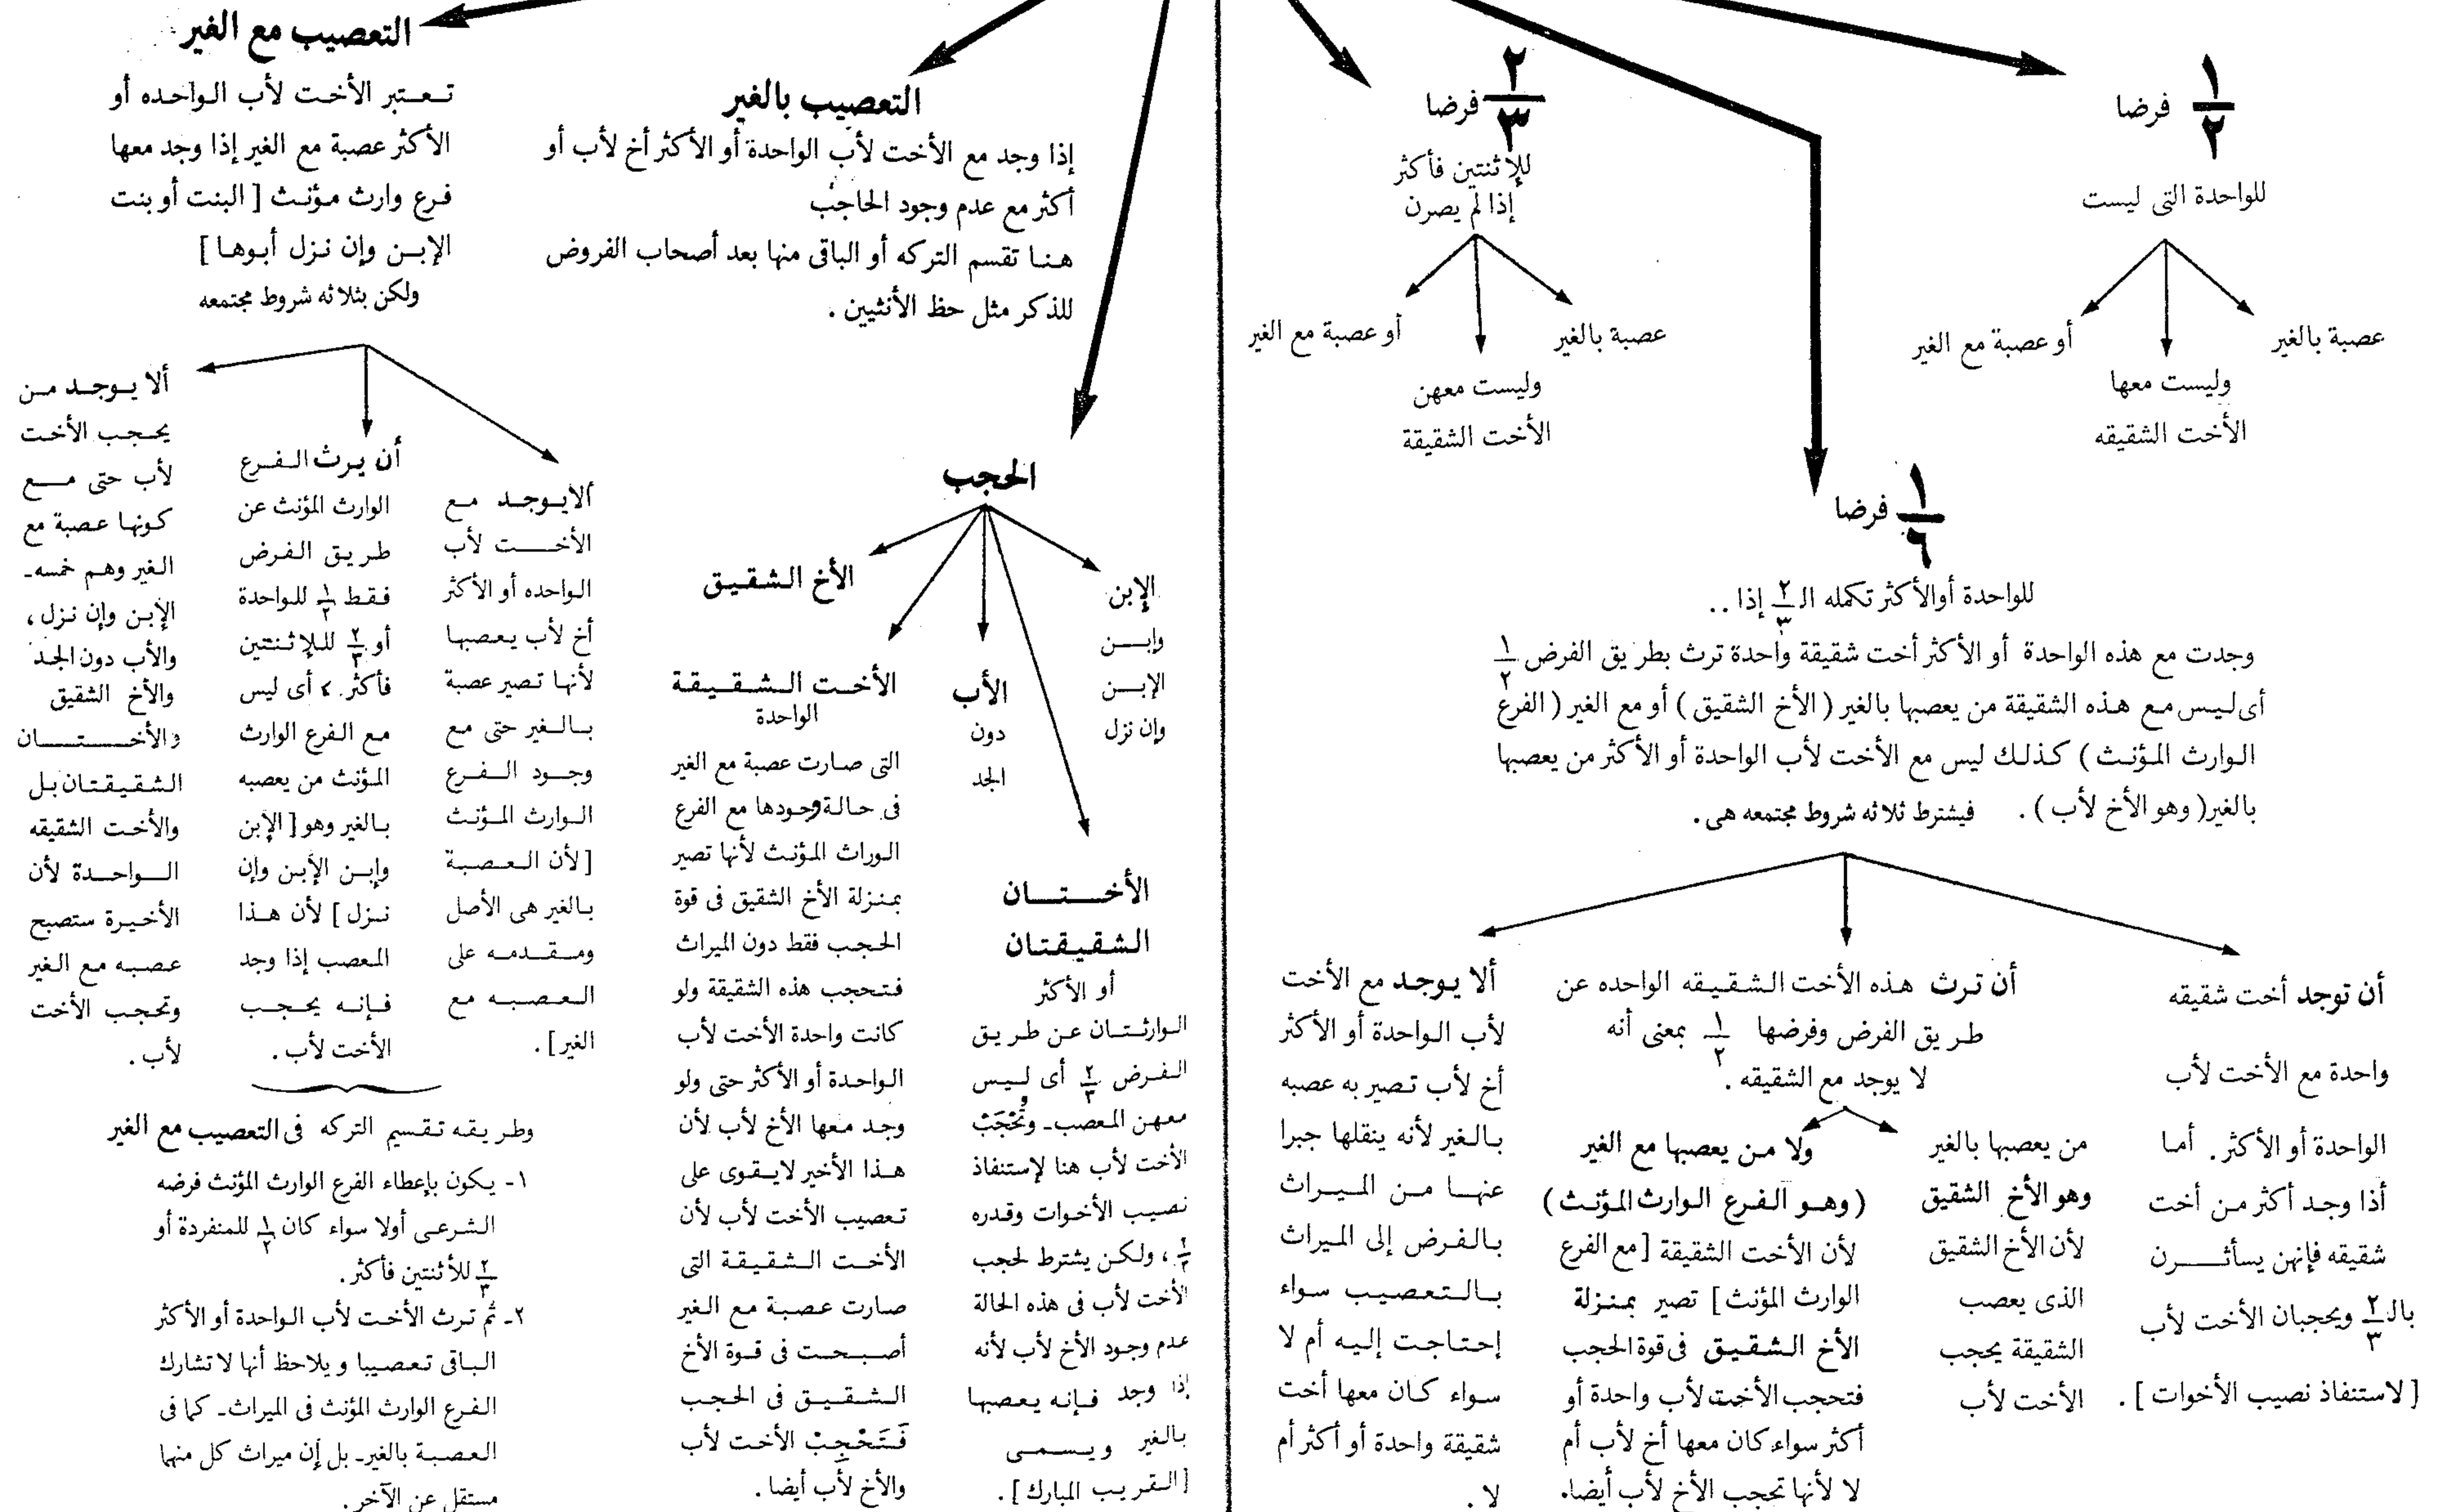 ١/٢ فرضا
للواحدة التى ليست
عصبة بالغير
وليست معها
الأخت الشقيقه
أو عصبة مع الغير
٢/٣ فرضا
للإثنتين فأكثر
إذا لم يصرن
عصبة بالغير
وليست معهن
الأخت الشقيقة
أو عصبة مع الغير
١/٦ فرضا
للواحدة أوالأكثر تكمله الـ ٢/٣ إذا ..
وجدت مع هذه الواحدة أو الأكثر أخت شقيقة واحدة ترث بطريق الفرض ١/٢
أى ليس مع هذه الشقيقة من يعصبها بالغير (الأخ الشقيق) أو مع الغير (الفرع
الوارث المؤنث) كذلك ليس مع الأخت لأب الواحدة أو الأكثر من يعصبها
بالغير( وهو الأخ لأب ). فيشترط ثلاثه شروط مجتمعه هى.
أن توجد أخت شقيقه
واحدة مع الأخت لأب
الواحدة أو الأكثر. أما
أذا وجد أكثر من أخت
شقيقه فإنهن يسأثرن
بالـ ٢/٣ ويحجبان الأخت لأب
[ لاستنفاذ نصيب الأخوات ].
أن ترث هذه الأخت الشقيقه الواحده عن
طريق الفرض وفرضها ١/٢ بمعنى أنه
لا يوجد مع الشقيقه.
من يعصبها بالغير
وهو الأخ الشقيق
لأن الأخ الشقيق
الذى يعصب
الشقيقة يحجب
الأخت لأب
ولا من يعصبها مع الغير
(وهو الفرع الوارث المؤنث)
لأن الأخت الشقيقة [مع الفرع
الوارث المؤنث] تصير بمنزلة
الأخ الشقيق فى قوة الحجب
فتحجب الأخت لأب واحدة أو
أكثر سواء كان معها أخ لأب أم
لا لأنها تحجب الأخ لأب أيضا.
ألا يوجد مع الأخت
لأب الواحدة أو الأكثر
أخ لأب تصير به عصبه
بالغير لأنه ينقلها جبرا
عنها من الميراث
بالفرض إلى الميراث
بالتعصيب سواء
إحتاجت إليه أم لا
سواء كان معها أخت
شقيقة واحدة أو أكثر أم
لا .
الحجب
الإبن
وإبن
الإبن
وإن نزل
الأختان
الشقيقتان
أو الأكثر
الوارثتان عن طريق
الفرض ٢/٣ أى ليس
معهن المعصب ـ وتُحْجَبْ
الأخت لأب هنا لإستنفاذ
نصيب الأخوات وقدره
٢/٣ ، ولكن يشترط لحجب
الأخت لأب فى هذه الحالة
عدم وجود الأخ لأب لأنه
إذا وجد فإنه يعصبها
بالغير ويسمى
[القريب المبارك] .
الأب
دون
الجد
الأخت الشقيقة
الواحدة
التى صارت عصبة مع الغير
فى حالة وجودها مع الفرع
الوراث المؤنث لأنها تصير
بمنزلة الأخ الشقيق فى قوة
الحجب فقط دون الميراث
فتحجب هذه الشقيقة ولو
كانت واحدة الأخت لأب
الواحدة أو الأكثر حتى ولو
وجد معها الأخ لأب لأن
هذا الأخير لايقوى على
تعصيب الأخت لأب لأن
الأخت الشقيقة التى
صارت عصبة مع الغير
أصبحت فى قوة الأخ
الشقيق فى الحجب
فَتَحْجِبْ الأخت لأب
والأخ لأب أيضا .
الأخ الشقيق
التعصيب بالغير
إذا وجد مع الأخت لأب الواحدة أو الأكثر أخ لأب أو
أكثر مع عدم وجود الحاجب
هنا تقسم التركه أو الباقى منها بعد أصحاب الفروض
للذكر مثل حظ الأنثيين .
التعصيب مع الغير
تعتبر الأخت لأب الواحده أو
الأكثر عصبة مع الغير إذا وجد معها
فرع وارث مؤنث [ البنت أو بنت
الإبن وإن نزل أبوها ]
ولكن بثلاثه شروط مجتمعه
ألايوجد مع
الأخت لأب
الواحده أو الأكثر
أخ لأب يعصبها
لأنها تصير عصبة
بالغير حتى مع
وجود الفرع
الوارث المؤنث
[لأن العصبة
بالغير هى الأصل
ومقدمه على
العصبه مع
الغير] .
أن يرث الفرع
الوارث المؤنث عن
طريق الفرض
فقط ١/٢ للواحدة
أو ٢/٣ للإثنتين
فأكثر. أى ليس
مع الفرع الوارث
المؤنث من يعصبه
بالغير وهو [الإبن
وإبن الإبن وإن
نزل ] لأن هذا
المعصب إذا وجد
فإنه يحجب
الأخت لأب .
ألا يوجد من
يحجب الأخت
لأب حتى مع
كونها عصبة مع
الغير وهم خمسه ـ
الإبن وإن نزل ،
والأب دون الجد
والأخ الشقيق
والأختان
الشقيقتان بل
والأخت الشقيقه
الواحدة لأن
الأخيرة ستصبح
عصبه مع الغير
وتحجب الأخت
لأب .
وطريقه تقسيم التركه فى التعصيب مع الغير
١ـ يكون بإعطاء الفرع الوارث المؤنث فرضه
الشرعى أولا سواء كان ١/٢ للمنفردة أو
٢/٣ للأثنتين فأكثر .
٢ـ ثم ترث الأخت لأب الواحدة أو الأكثر
الباقى تعصيبا ويلاحظ أنها لا تشارك
الفرع الوارث المؤنث فى الميراث ـ كما فى
العصبة بالغير ـ بل إن ميراث كل منهما
مستقل عن الآخر .